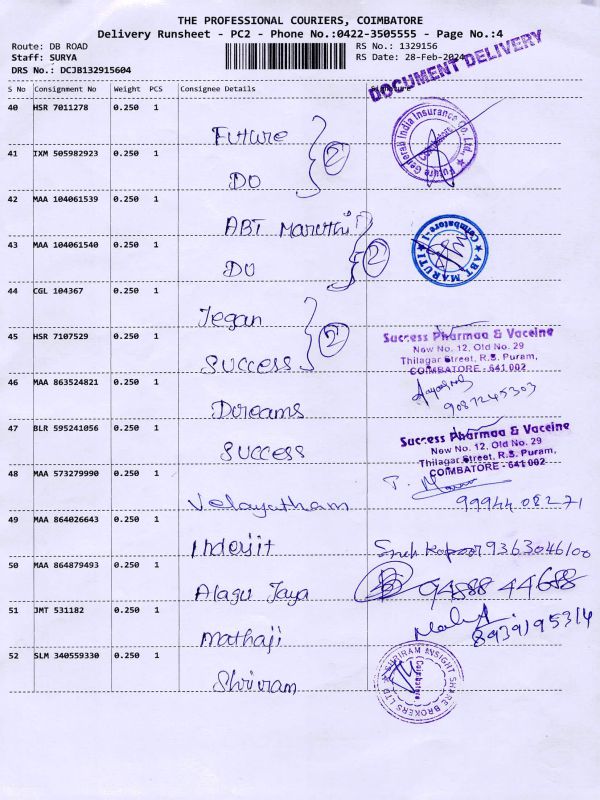 THE PROFESSIONAL COURIERS, COIMBATORE
Delivery Runsheet - PC2 - Phone No.:0422-3505555 - Page No.:4
Route: DB ROAD RS No.: 1329156
Staff: SURYA RS Date: 28-Feb-2024
DRS No.: DCJB132915604
DOCUMENT DELIVERY
S No Consignment No Weight PCS Consignee Details
40 HSR 7011278 0.250 1
Future
Future Generali India Insurance Co. Ltd.,
Coimbatore
2
41 IXM 505982923 0.250 1
DO
42 MAA 104061539 0.250 1
ABT Maruthi
43 MAA 104061540 0.250 1
DO
2
ABT MARUTI
Coimbatore-1
44 CGL 104367 0.250 1
Jegan
2
45 HSR 7107529 0.250 1
SUCCESS
Success Pharmaa & Vaccine
New No. 12, Old No. 29
Thilagar Street, R.S. Puram,
COIMBATORE - 641 002
46 MAA 863524821 0.250 1
Dcreams
9087245303
47 BLR 595241056 0.250 1
SUCCESS
Success Pharmaa & Vaccine
New No. 12, Old No. 29
Thilagar Street, R.S. Puram,
COIMBATORE - 641 002
48 MAA 573279990 0.250 1
Velayutham
99944 08271
49 MAA 864026643 0.250 1
Inderjit
Kapoor 9363046100
50 MAA 864879493 0.250 1
Alagu Jaya
94888 44688
51 JMT 531182 0.250 1
Mathaji
8939195314
52 SLM 340559330 0.250 1
Shriram
SHRIRAM INSIGHT SHARE BROKERS LTD
Coimbatore